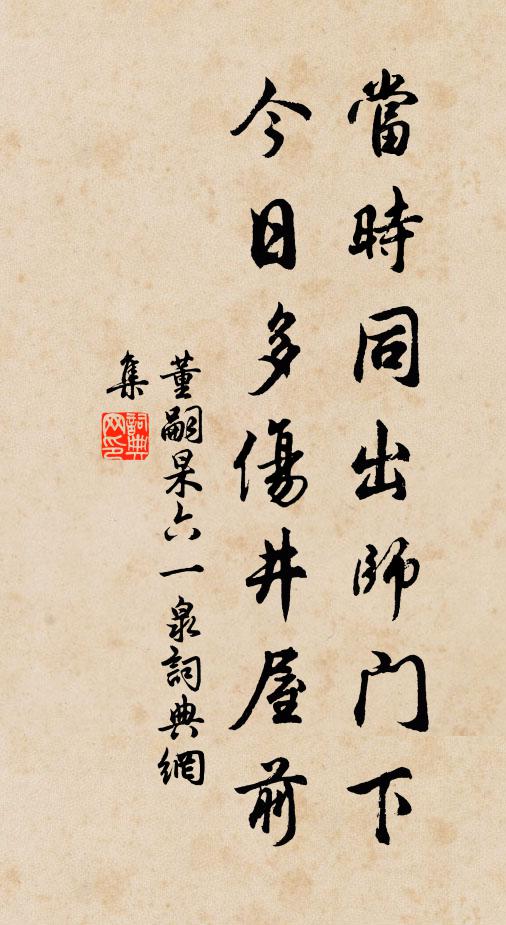 當時同出師门下
今日多傷井屋前
董嗣杲六一泉詞典網
集
詞典
网印